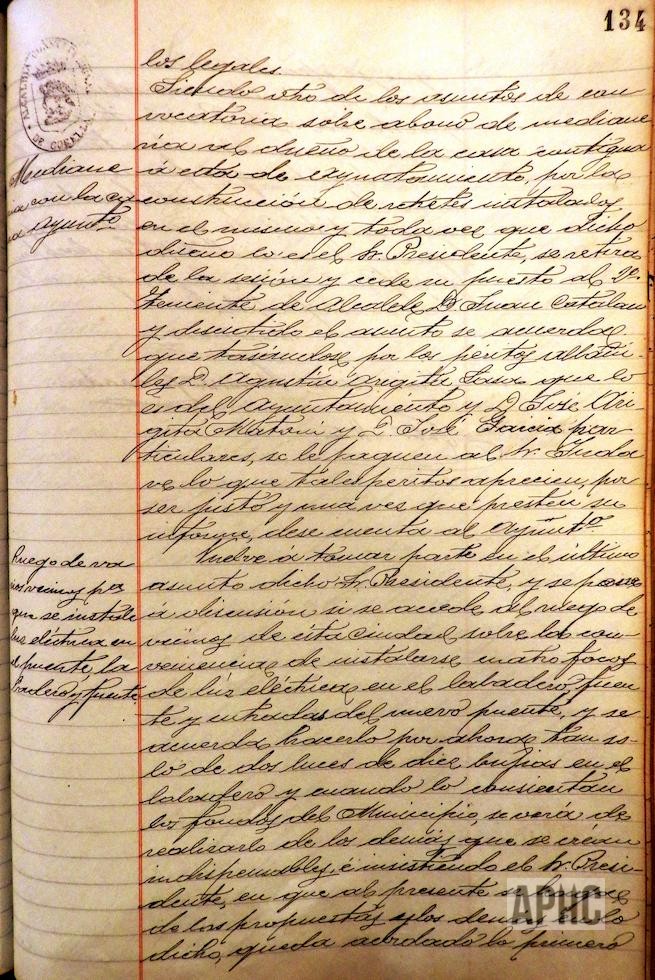 134
ALCALDIA CONSTITUCIONAL
DE CORELLA
los legales.
Siendo otro de los asuntos de con-
vocatoria sobre abono de mediane
ria al dueño de la casa contigua
á esta de ayuntamiento, por la
construcción de retretes instalados
en el mismo y toda vez que dicho
dueño lo es el Sr. Presidente, se retira
de la sesión y cede su puesto al 2º
Teniente de Alcalde D. Juan Catalan
y discutido el asunto se acuerda
que tasándose por los péritos albañi-
les D. Agustin Arigita Sasa que lo
es del Ayuntamiento y D. José Ari-
gita Mateo y D. José Garcia par-
ticulares, se le paguen al Sr.
lo que tales peritos aprecien, por
ser justo y una vez que presten su
informe, dese cuenta al Ayuntº
Vuelve á tomar parte en el último
asunto dicho Sr. Presidente, y se pone
á discusión si se accede al ruego de
vecinos de esta Ciudad sobre la con-
veniencia de instalarse cuatro focos
de luz eléctrica en el labadero, fuen-
te y entradas del nuevo puente, y se
acuerda hacerlo por ahora tan so-
lo de dos luces de diez bujias en el
labadero y cuando lo consientan
los fondos del Municipio, se verá de
realizarlo de los demás que se créan
indispensables, é insistiendo el Sr. Presi-
dente, en que al presente
de las propuestas y los demás lo
dicho, queda acordado lo primero
Mediane
ria con la ca
sa Ayuntº
Ruego de va
rios vecinos pª
que se instale
luz eléctrica en
el puente, la
badero y fuente.
APHC